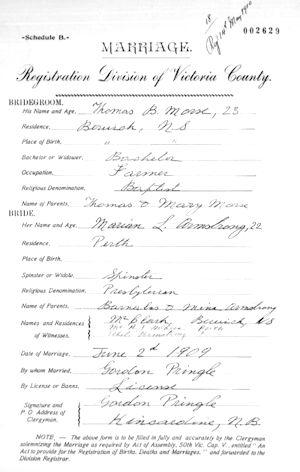 –Schedule B.–
18
002629
MARRIAGE.
Registration Division of Victoria County.
BRIDEGROOM.
His Name and Age, Thomas B. Morse, 23
Residence, Berwick, N S
Place of Birth, " "
Bachelor or Widower, Bachelor
Occupation, Farmer
Religious Denomination, Baptist
Name of Parents, Thomas & Mary Morse
BRIDE.
Her Name and Age, Marian L. Armstrong, 22
Residence, Perth
Place of Birth.
Spinster or Widow. Spinster
Religious Denomination, Presbyterian
Name of Parents, & Armstrong
Names and Residences Berwick, N S
of Witnesses. Perth
Armstrong
Date of Marriage. June 2d 1909
By whom Married, Gordon Pringle
By License or Banns, Lisense
Signature and Gordon Pringle
P. O Address of
Clergyman. Kincardine, N.B.
NOTE, — The above form is to be filled in fully and accurately by the Clergyman
solemnizing the Marriage as required by Act of Assembly, 50th Vic. Cap. V., entitled "An
Act to provide for the Registration of Births, Deaths and Marriages," and forwarded to the
Division Registrar.